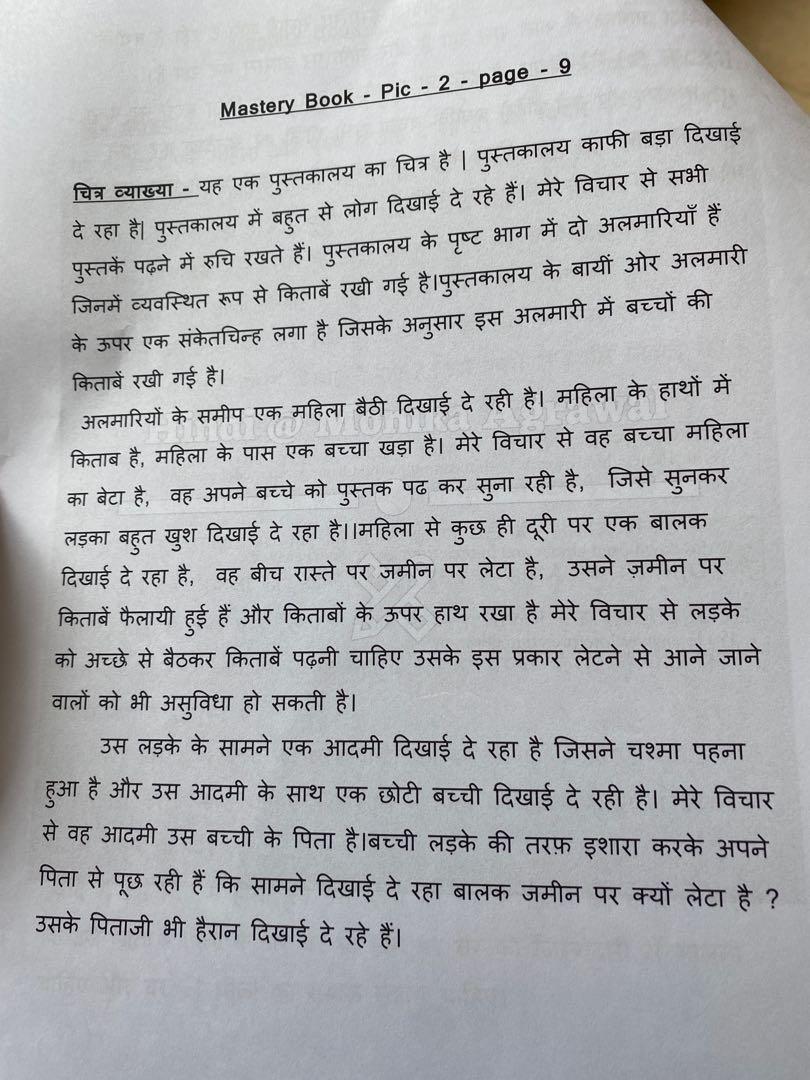 Mastery Book - Pic - 2 - page - 9
चित्र व्याख्या - यह एक पुस्तकालय का चित्र है | पुस्तकालय काफी बड़ा दिखाई
दे रहा है| पुस्तकालय में बहुत से लोग दिखाई दे रहे हैं| मेरे विचार से सभी
पुस्तकें पढ़ने में रुचि रखते हैं| पुस्तकालय के पृष्ट भाग में दो अलमारियाँ हैं
जिनमें व्यवस्थित रूप से किताबें रखी गई है|पुस्तकालय के बायीं ओर अलमारी
के ऊपर एक संकेतचिन्ह लगा है जिसके अनुसार इस अलमारी में बच्चों की
किताबें रखी गई है|
अलमारियों के समीप एक महिला बैठी दिखाई दे रही है| महिला के हाथों में
Hindi @ Monika Agrawal
किताब है, महिला के पास एक बच्चा खड़ा है| मेरे विचार से वह बच्चा महिला
का बेटा है, वह अपने बच्चे को पुस्तक पढ कर सुना रही है, जिसे सुनकर
लड़का बहुत खुश दिखाई दे रहा है||महिला से कुछ ही दूरी पर एक बालक
दिखाई दे रहा है, वह बीच रास्ते पर जमीन पर लेटा है, उसने ज़मीन पर
किताबें फैलायी हुई हैं और किताबों के ऊपर हाथ रखा है मेरे विचार से लड़के
को अच्छे से बैठकर किताबें पढ़नी चाहिए उसके इस प्रकार लेटने से आने जाने
वालों को भी असुविधा हो सकती है|
उस लड़के के सामने एक आदमी दिखाई दे रहा है जिसने चश्मा पहना
हुआ है और उस आदमी के साथ एक छोटी बच्ची दिखाई दे रही है| मेरे विचार
से वह आदमी उस बच्ची के पिता है|बच्ची लड़के की तरफ़ इशारा करके अपने
पिता से पूछ रही हैं कि सामने दिखाई दे रहा बालक जमीन पर क्यों लेटा है ?
उसके पिताजी भी हैरान दिखाई दे रहे हैं|